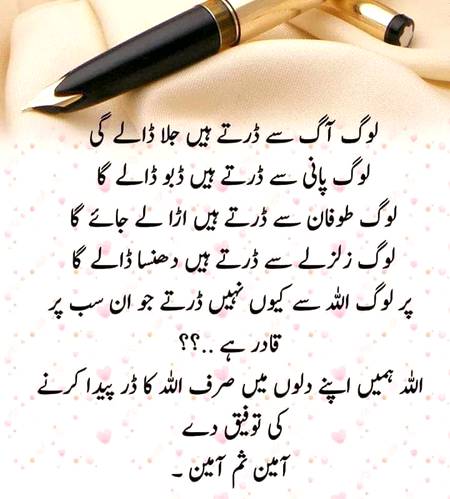 لوگ آگ سے ڈرتے ہیں جلا ڈالے گی
لوگ پانی سے ڈرتے ہیں ڈبو ڈالے گا
لوگ طوفان سے ڈرتے ہیں اڑا لے جائے گا
لوگ زلزلے سے ڈرتے ہیں دھنسا ڈالے گا
پر لوگ اللہ سے کیوں نہیں ڈرتے جو ان سب پر
قادر ہے ..؟؟
اللہ ہمیں اپنے دلوں میں صرف اللہ کا ڈر پیدا کرنے
کی توفیق دے
آمین ثم آمین ۔